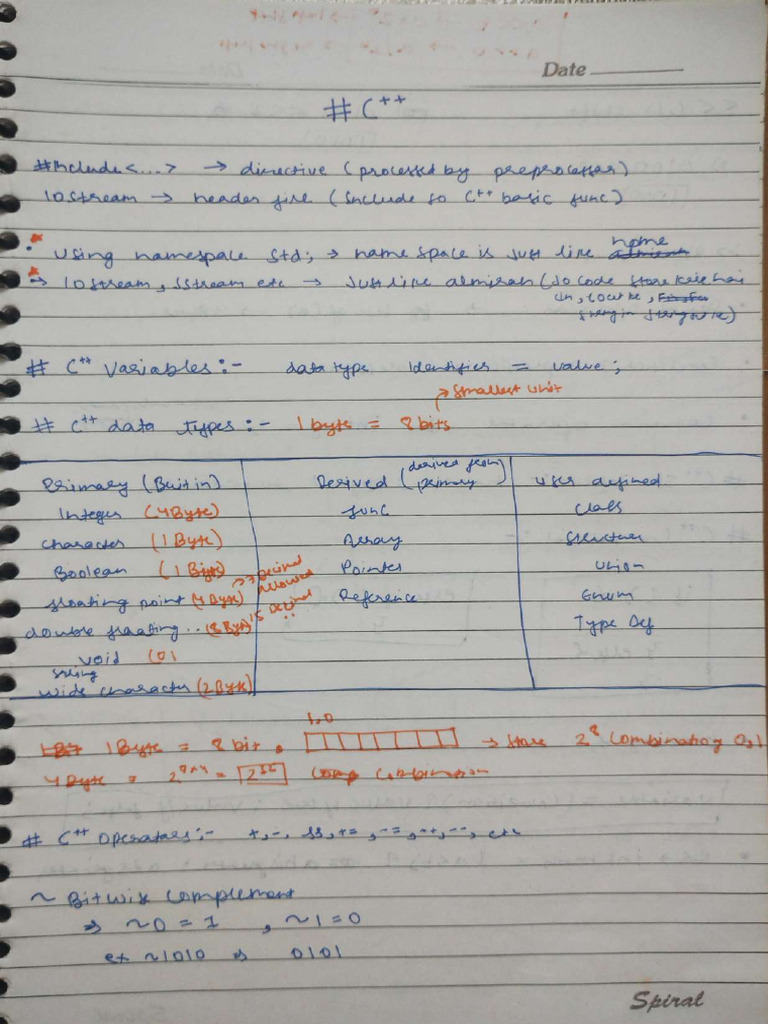 Date
# C++
#include<...> → directive (processed by preprocessor)
iostream → header file (include so C++ basic func)
• using namespace std; → name space is just like name
→ iostream, sstream etc → Just like almirah (jo code store kiye hai
cin, cout ke,
string in
C++ Variables:- data type identifier = value;
→ smallest unit
# C++ data types:- 1 byte = 8 bits
Primary (Builtin) Derived (derived from primary) user defined
Integer (4 Byte) func class
character (1 Byte) Array structure
Boolean (1 Byte) Pointer union
floating point (4 Byte) → 7 decimal allowed Reference Enum
double floating .. (8 Byte) 15 decimal Type Def
void (0)
string
wide character (2 Byte)
1,0
1 Byte = 8 bit • → store 2^8 combination 0,1
4 Byte = 2^8×4 = 2^32 combination
# C++ operators:- +, -, , +=, -=, ++, --, etc
~ Bitwise complement
⇒ ~0 = 1 , ~1 = 0
ex ~1010 ⇒ 0101
Spiral